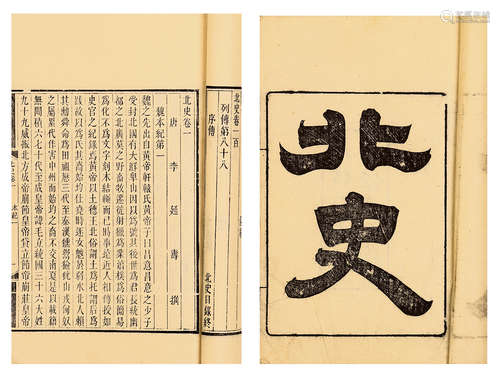 北史
北史卷一百
列傳第八十八
序傳
北史目錄終
北史卷一
唐 李延壽 撰
魏本紀第一
魏之先出自黃帝軒轅氏黃帝子曰昌意昌意之少子
受封北國有大鮮卑山因以爲號其後世爲君長統幽
都之北廣莫之野畜牧遷徙射獵爲業淳樸爲俗簡易
爲化不爲文字刻木結繩而已時事遠近人相傳授如
史官之紀錄焉黃帝以土德王北俗謂土爲托謂后爲
跋故以爲氏其裔始均仕堯時逐女魃於弱水北人賴
其勳舜命爲田祖歷三代至秦漢獯鬻獫狁山戎匈奴
之屬累代作害中州而始均之裔不交南夏是以載籍
無聞積六七十代至成皇帝諱毛立統國三十六大姓
九十九威振北方成帝崩節皇帝貸立節帝崩莊皇帝